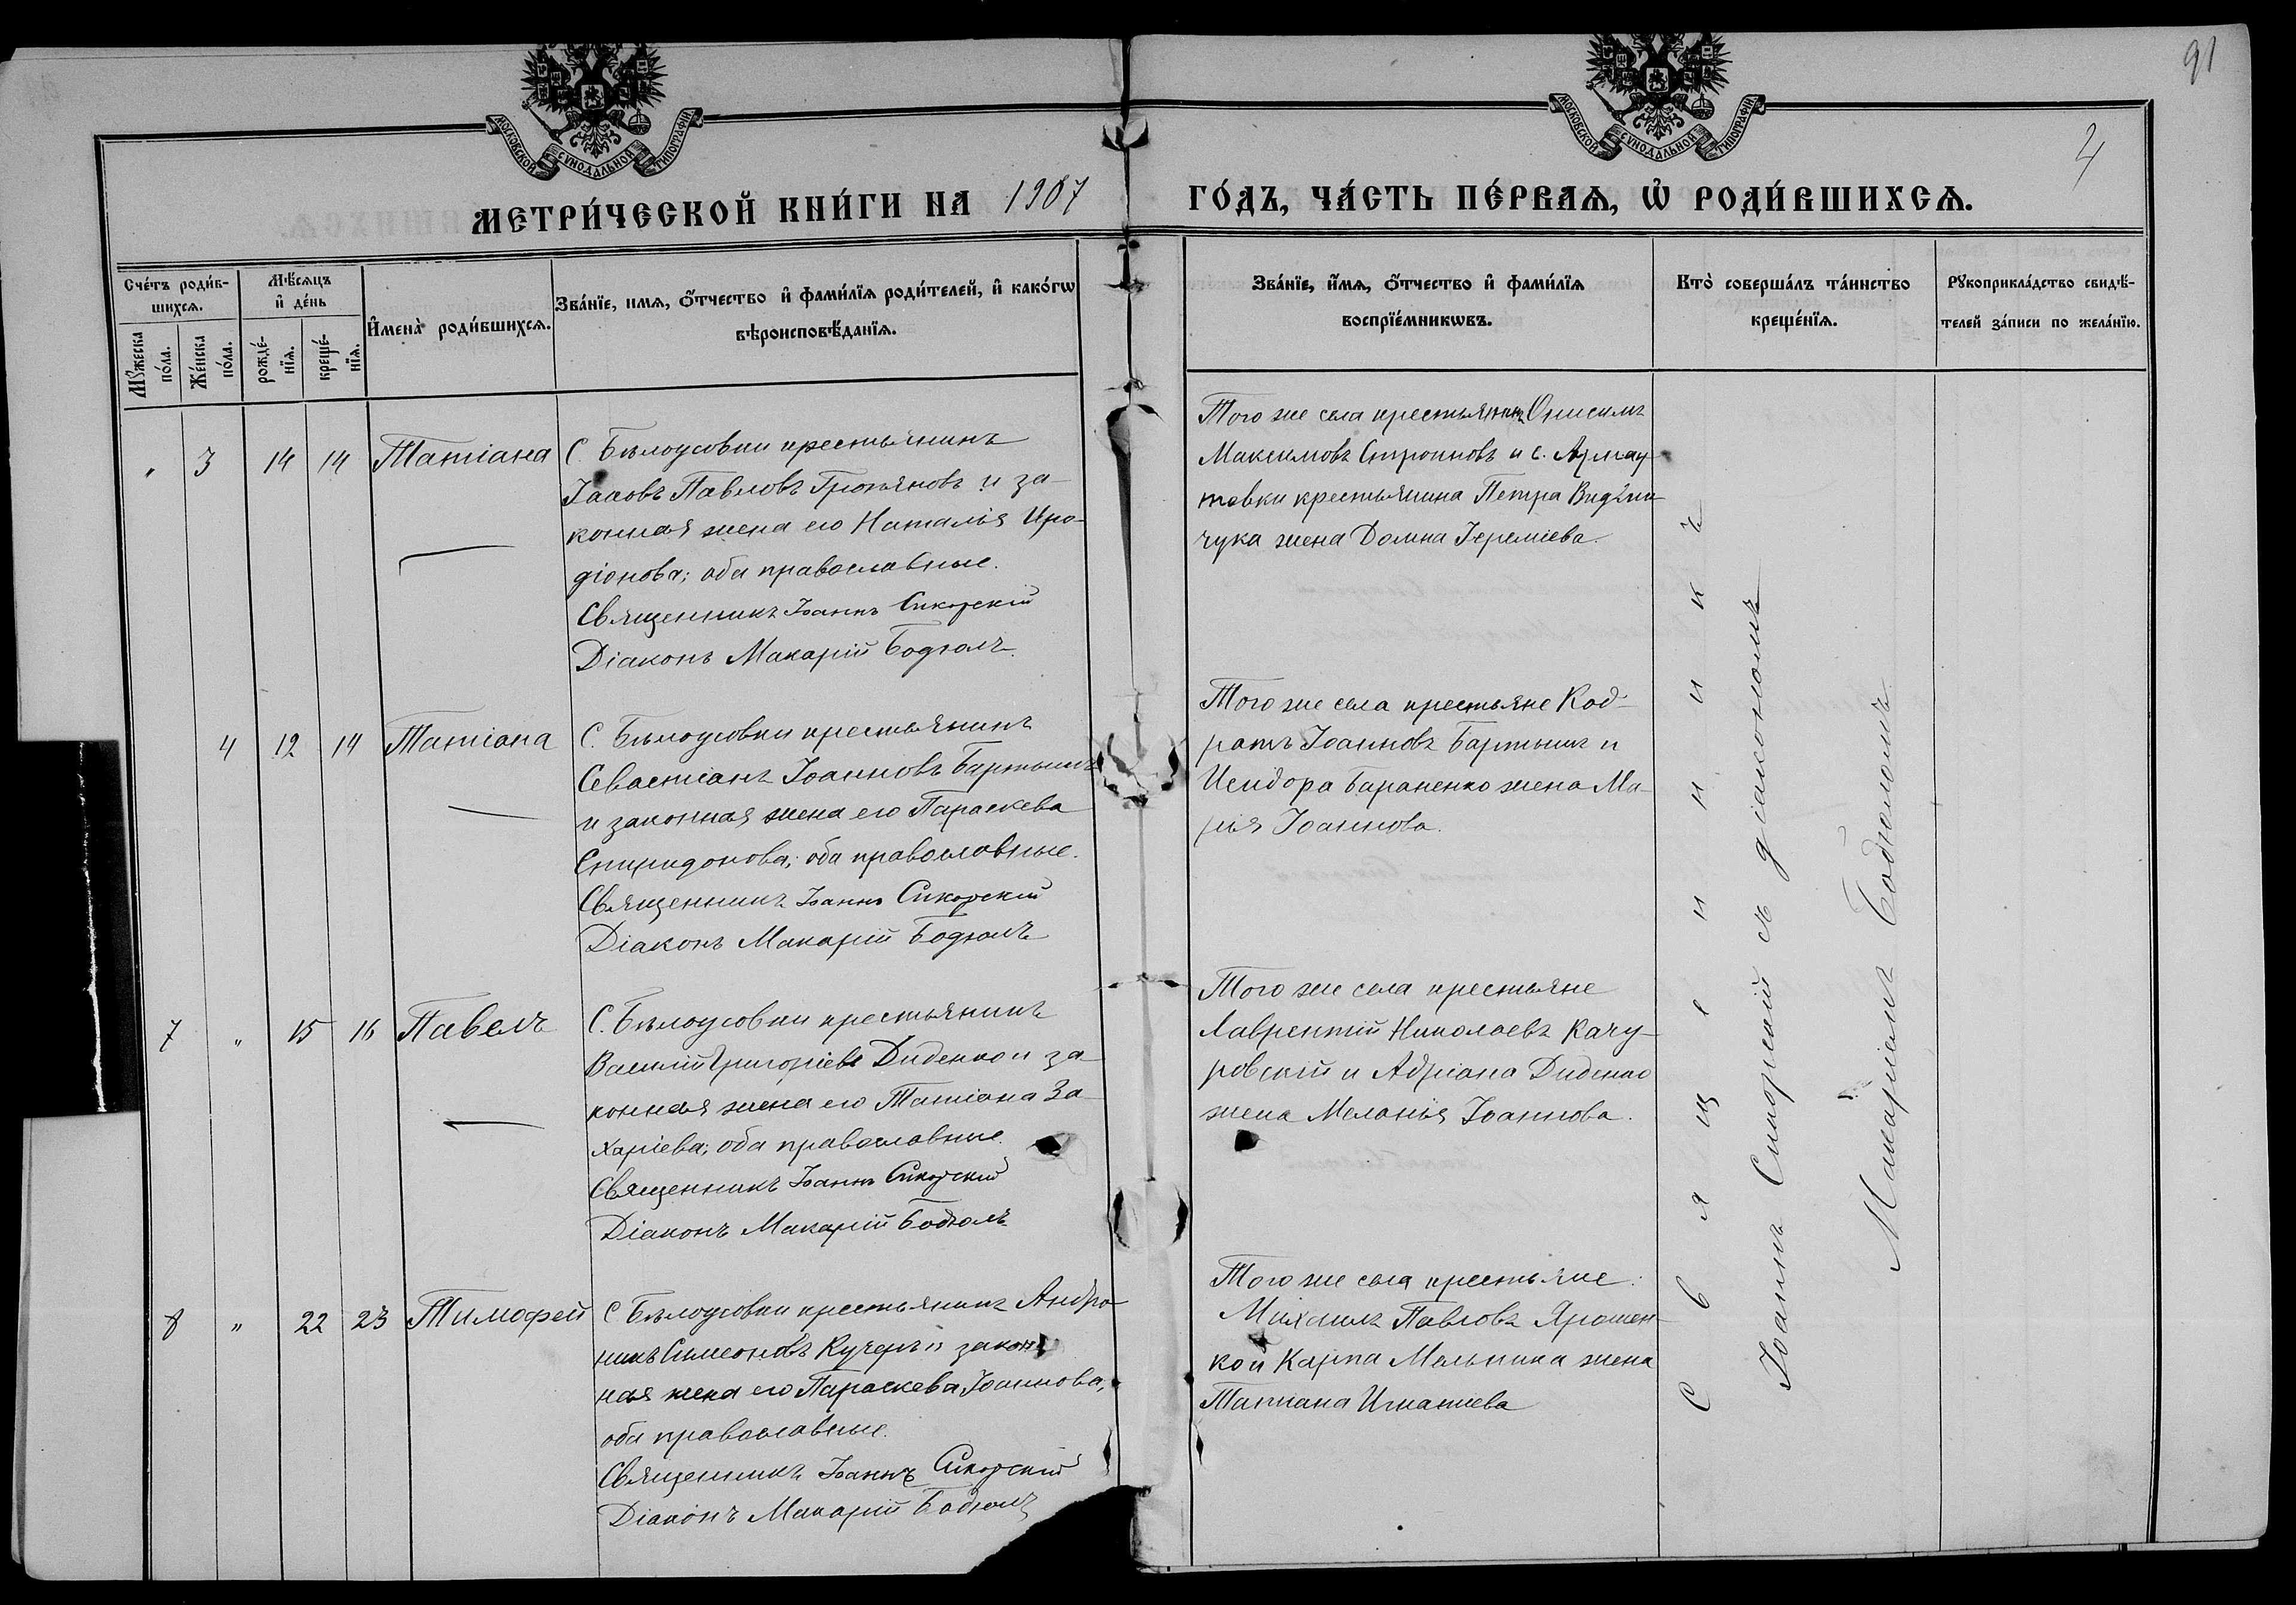 91
4
МОСКОВСКОЙ СѴНОДАЛЬНОЙ ТИПОГРАФІИ
МОСКОВСКОЙ СѴНОДАЛЬНОЙ ТИПОГРАФІИ
МЕТРИ́ЧЕСКОЙ КНИ́ГИ НА 1907
ГО́ДЪ, ЧА́СТЬ ПЕ́РВАѦ, Ѡ҆ РОДИ́ВШИХСѦ.
Сче́тъ роди́в-
шихсѧ.
Мꙋ́жеска
по́ла.
Же́нска
по́ла.
Мѣ́сѧцъ
и҆ де́нь
рожде́-
нїѧ.
креще́-
нїѧ.
И҆мена̀ роди́вшихсѧ.
Зва́нїе, имѧ, ѻ҆́тчество и҆ фами́лїѧ роди́телей, и҆ како́гѡ
вѣроисповѣ́данїѧ.
Зва́нїе, и҆́мѧ, ѻ҆́тчество и҆ фами́лїѧ
воспрїе́мникѡвъ.
Кто̀ соверша́лъ та́инство
креще́нїѧ.
Рꙋкоприкла́дство свидѣ́-
телей за́писи по жела́нїю.
" 3 14 14 Татіана
С. Бѣлоусовки крестьянинъ
Іаковъ Павловъ Трояновъ и за-
конная жена его Наталія Иро-
діонова; оба православные.
Священникъ Іоаннъ Сикорскій
Діаконъ Макарій Бодюлъ
Того же села крестьянинъ Онисимъ
Максимовъ и с. Арнау-
товки крестьянина Петра
чука жена Домна Іереміева.
4 12 14 Татіана
С. Бѣлоусовки крестьянинъ
Севастіанъ Іоанновъ Бартышъ
и законная жена его Параскева
Спиридонова; оба православные.
Священникъ Іоаннъ Сикорскій
Діаконъ Макарій Бодюлъ
Того же села крестьяне Код-
ратъ Іоанновъ Бартышъ и
Исидора Бараненко жена Ма-
рія Іоаннова.
7 " 15 16 Павелъ
С. Бѣлоусовки крестьянинъ
Василій Григоріевъ Диденко и за-
конная жена его Татіана За-
харіева; оба православные.
Священникъ Іоаннъ Сикорскій
Діаконъ Макарій Бодюлъ
Того же села крестьяне
Лаврентій Николаевъ Качу-
ровскій и Адріана Диденко
жена Меланія Іоаннова.
8 " 22 23 Тимофей
С Бѣлоусовки крестьянинъ Андро-
никъ Симеоновъ Кучеръ и закон-
ная жена его Параскева Іоаннова,
оба православные.
Священникъ Іоаннъ Сикорскій
Діаконъ Макарій Бодюлъ
Того же села крестьяне:
Михаилъ Павловъ Ярошен-
ко и Карпа Мельника жена
Татіана Игнатіева
Священникъ
Іоаннъ Сикорскій съ діакономъ
Макаріемъ Бодюломъ